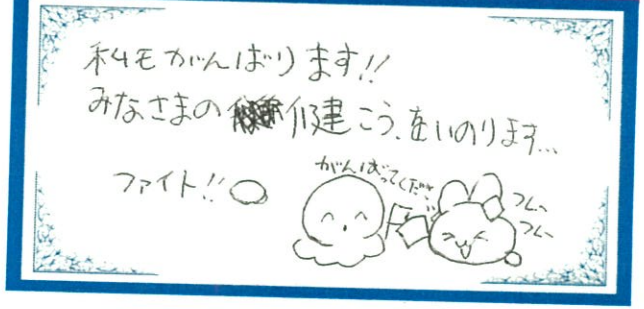 私もがんばります!!
みなさまの健こうをいのります...
ファイト!!
がんばってください